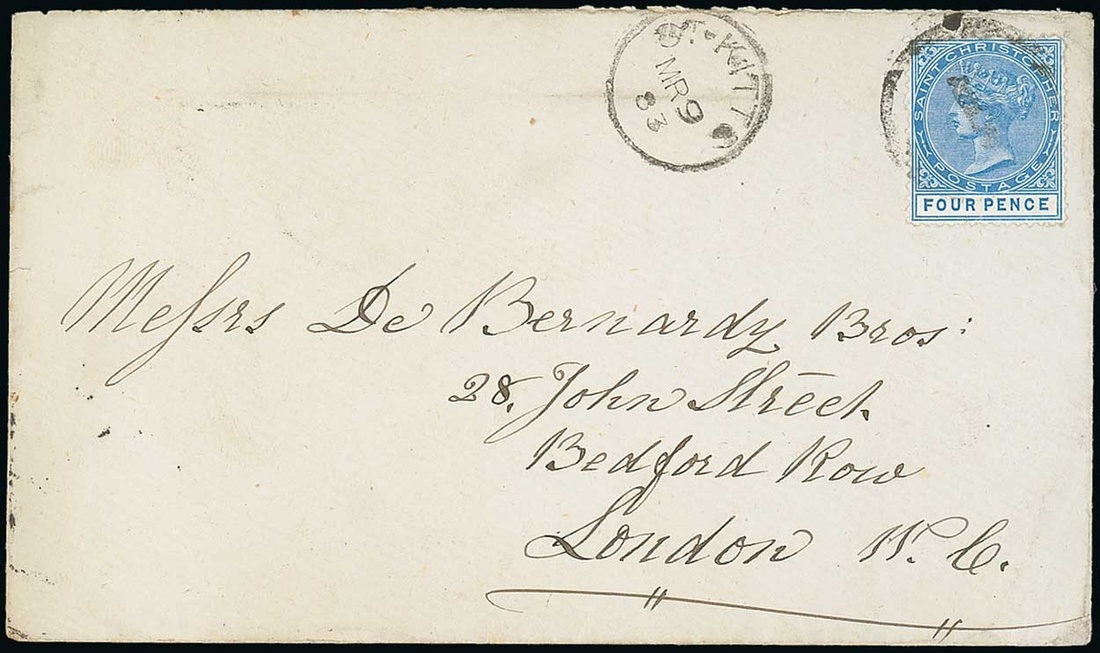 ST-KITTS
MR 9
83
SAINT CHRISTOPHER
POSTAGE
FOUR PENCE
Messrs De Bernardy Bros:
28, John Street
Bedford Row
London W.C.